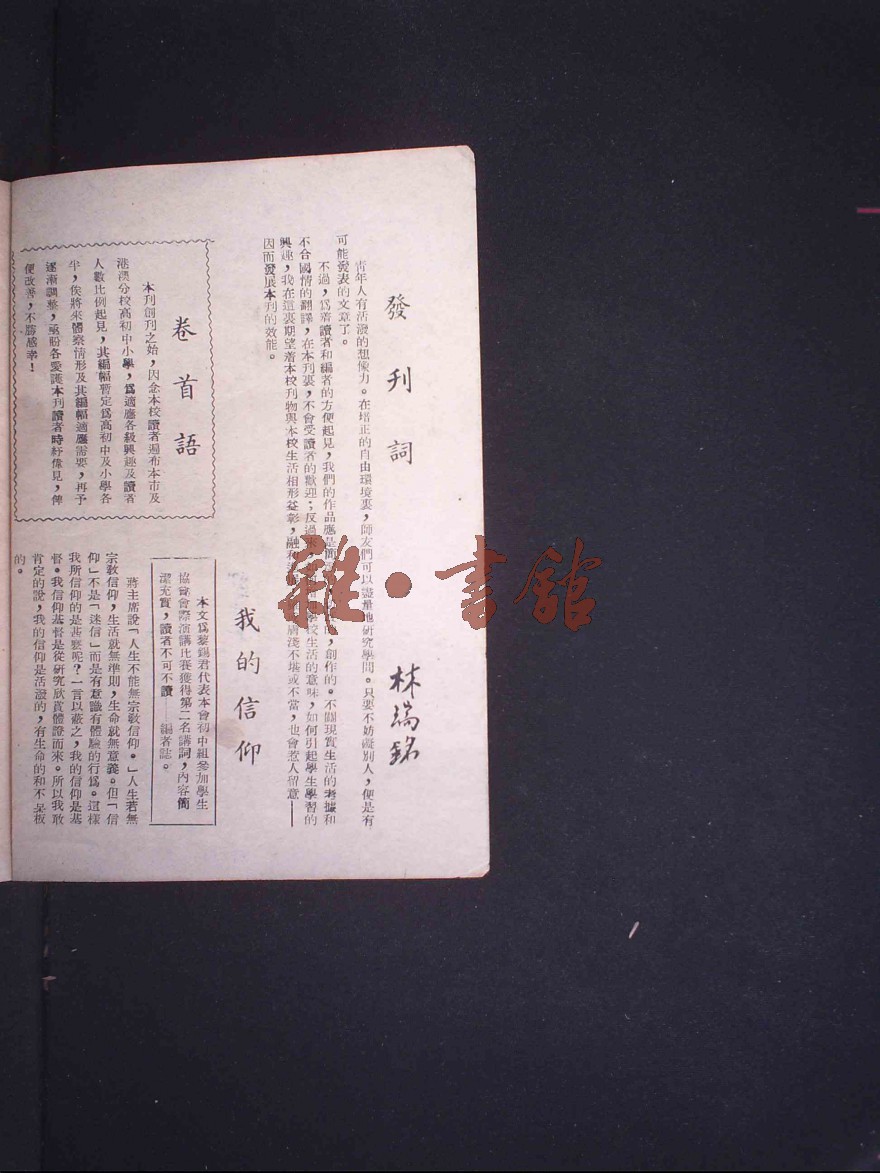 發刊詞
林瑞銘
青年人有活潑的想像力。在培正的自由環境裏,師友們可以盡量地研究學問。只要不妨礙別人,便是有
可能發表的文章了。
不過,爲着讀者和編者的方便起見,我們的作品應是簡 的,創作的。不關現實生活的考據和
不合國情的翻譯,在本刊裏,不會受讀者的歡迎;反過來 學校生活的意味,如何引起學生學習的
興趣,我在這裏期望着本校刊物與本校生活相形益彰,融和 膚淺不堪或不當,也會惹人留意——
因而發展本刊的效能。
卷首語
本刊創刊之始,因念本校讀者遍布本市及
港澳分校高初中小學,爲適應各級興趣及讀者
人數比例起見,其編幅暫定爲高初中及小學各
半,俟將來體察情形及其編幅適應需要,再予
逐漸調整,亟盼各愛護本刊讀者時紓偉見,俾
便改善,不勝感幸!
我的信仰
本文爲黎錫君代表本會初中組參加學生
協會會際演講比賽獲得第二名講詞,內容簡
潔充實,讀者不可不讀——編者誌。
蔣主席說「人生不能無宗敎信仰。」人生若無
宗敎信仰,生活就無準則,生命就無意義。但「信
仰」不是「迷信」而是有意識有體驗的行爲。這樣
我所信仰的是甚麽呢?一言以蔽之,我的信仰是基
督。我信仰基督是從研究欣賞體證而來。所以我敢
肯定的說,我的信仰是活潑的,有生命的和不呆板
的。
雜·書館